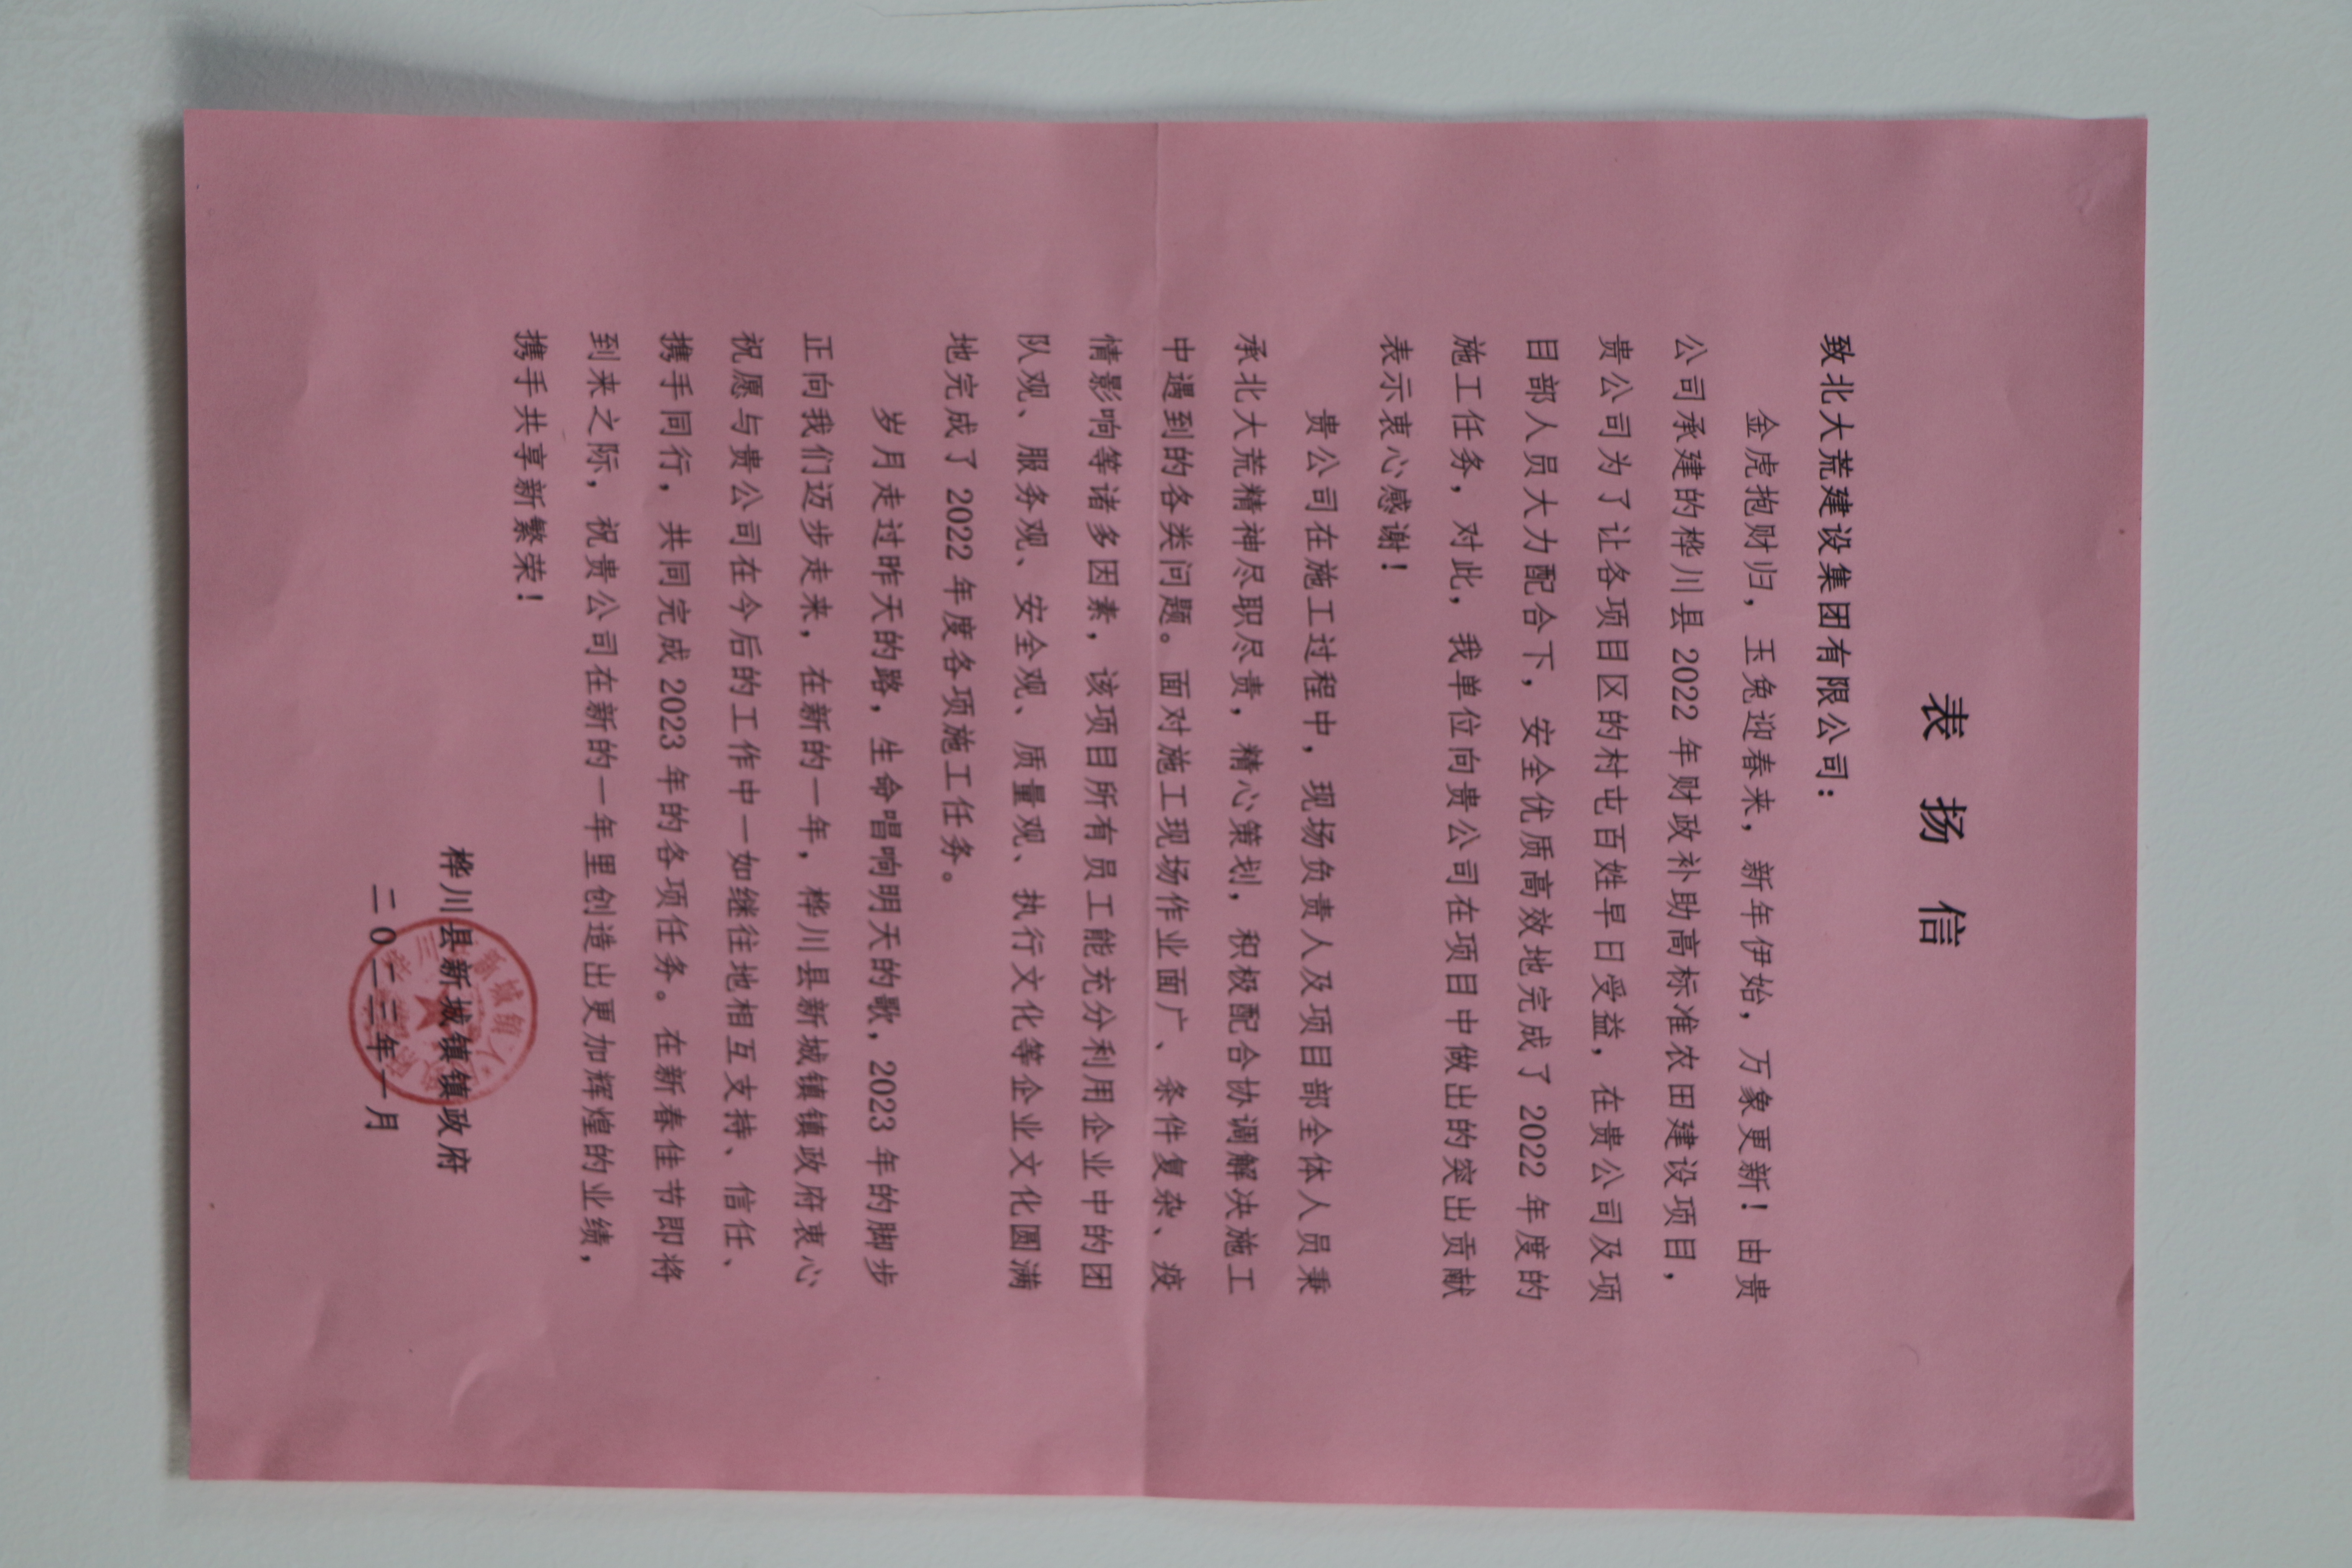 表扬信
致北大荒建设集团有限公司：
金虎抱财归，玉兔迎春来，新年伊始，万象更新！由贵
公司承建的桦川县2022年财政补助高标准农田建设项目，
贵公司为了让各项目区的村屯百姓早日受益，在贵公司及项
目部人员大力配合下，安全优质高效地完成了2022年度的
施工任务，对此，我单位向贵公司在项目中做出的突出贡献
表示衷心感谢！
贵公司在施工过程中，现场负责人及项目部全体人员秉
承北大荒精神尽职尽责，精心策划，积极配合协调解决施工
中遇到的各类问题。面对施工现场作业面广、条件复杂、疫
情影响等诸多因素，该项目所有员工能充分利用企业中的团
队观、服务观、安全观、质量观、执行文化等企业文化圆满
地完成了2022年度各项施工任务。
岁月走过昨天的路，生命唱响明天的歌，2023年的脚步
正向我们迈步走来，在新的一年，桦川县新城镇镇政府衷心
祝愿与贵公司在今后的工作中一如继往地相互支持、信任、
携手同行，共同完成2023年的各项任务。在新春佳节即将
到来之际，祝贵公司在新的一年里创造出更加辉煌的业绩，
携手共享新繁荣！
桦川县新城镇镇政府
二0二三年一月